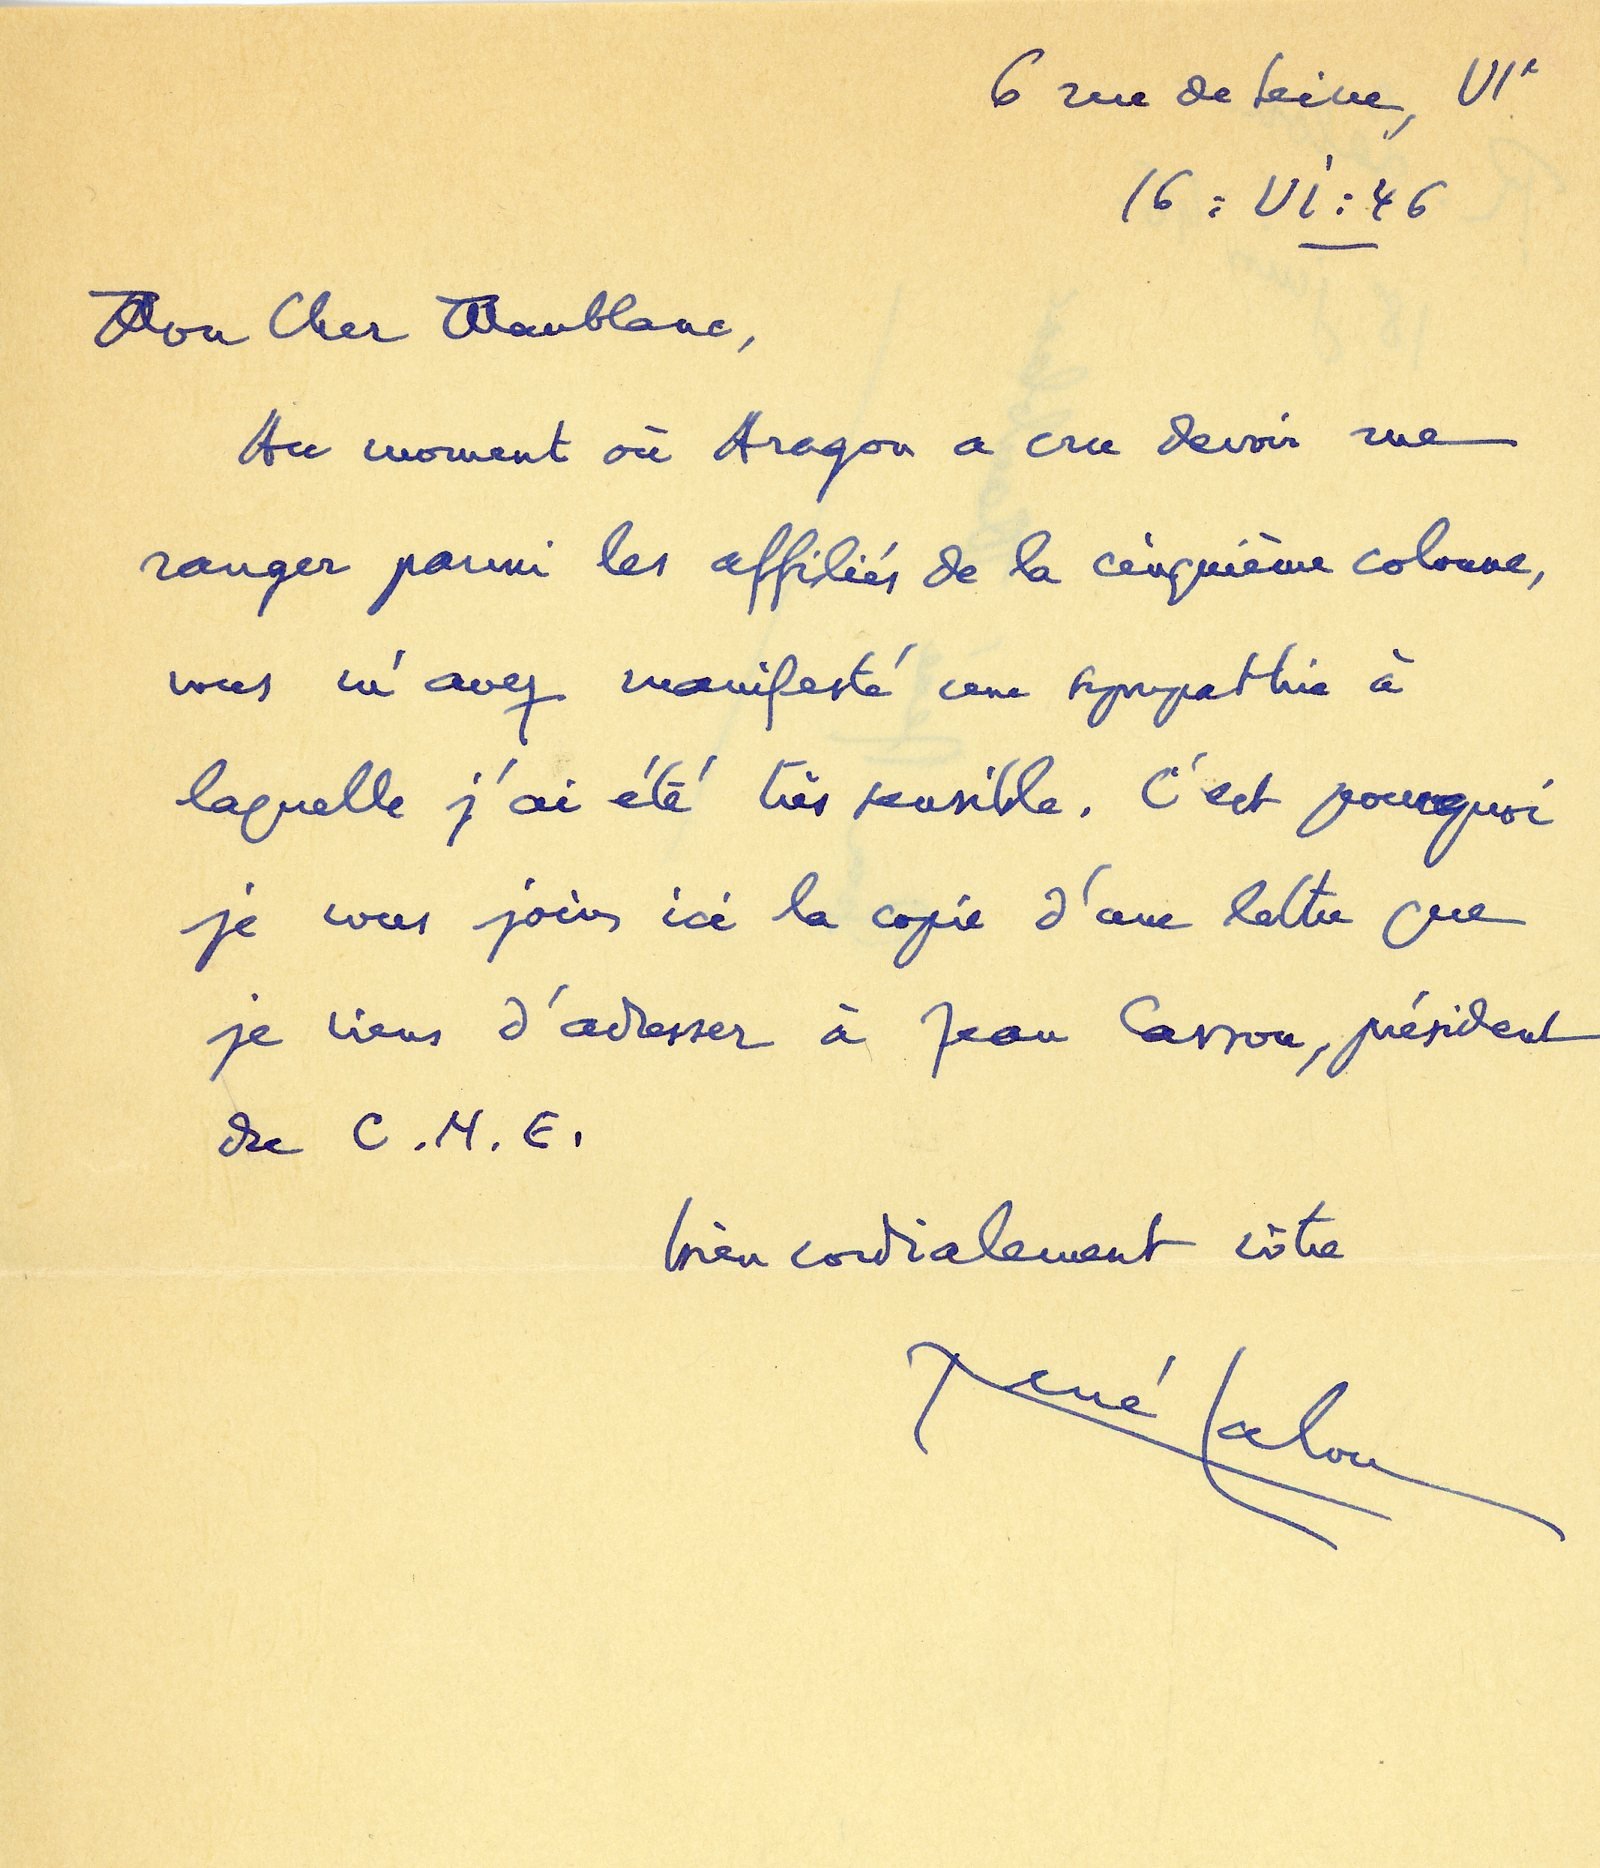 6 rue de Seine, VIe
16 : VI : 46
Mon Cher Maublanc,
Au moment où Aragon a cru devoir me
ranger parmi les affiliés de la cinquième colonne,
vous m'avez manifesté une sympathie à
laquelle j'ai été très sensible. C'est pourquoi
je vous joins ici la copie d'une lettre que
je viens d'adresser à Jean Cassou, président
du C.N.E.
bien cordialement vôtre
René Lalou